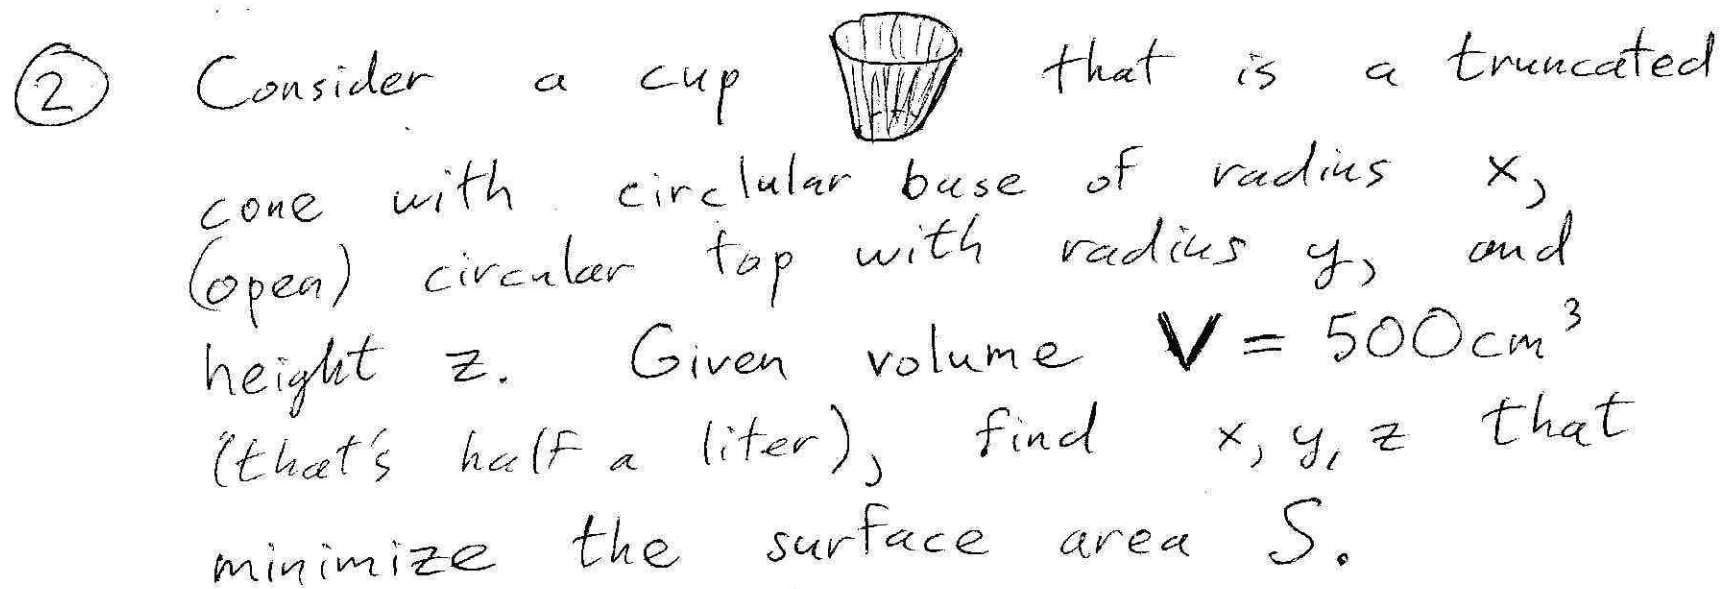 ② Consider a cup that is a truncated
cone with circlular base of radius x,
(open) circular top with radius y, and
height z. Given volume V = 500cm³
(that's half a liter), find x, y, z that
minimize the surface area S.